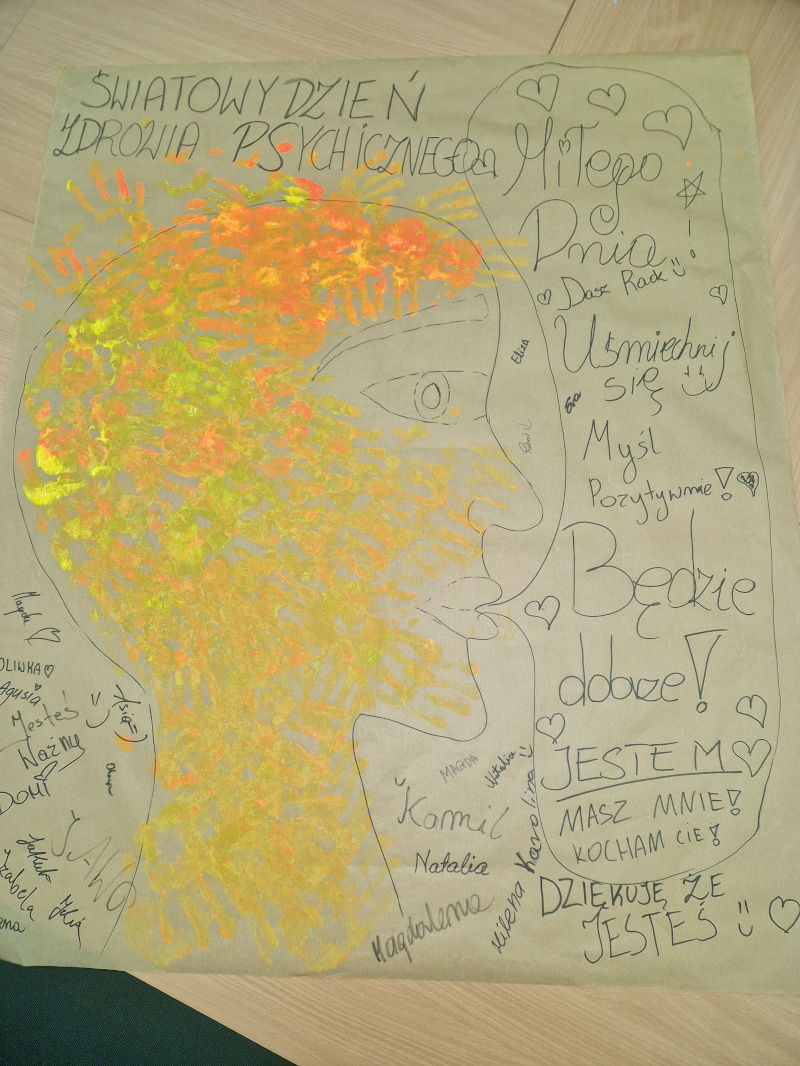 ŚWIATOWY DZIEŃ
ZDROWIA PSYCHICZNEGO
Miłego
Dnia!
Dasz Radę
Uśmiechnij
się
Myśl
Pozytywnie!
Będzie
dobrze!
JESTEM
MASZ MNIE!
KOCHAM CIĘ!
DZIĘKUJĘ ŻE
JESTEŚ
Eliza
Ewa
Magda
OLINKA
Agusia
Jesteś
Ważny
DOMI
Jakub
Izabela
Julia
MAGDA
Natalia
Kamil
Natalia
Karolina
Milena
Magdalena